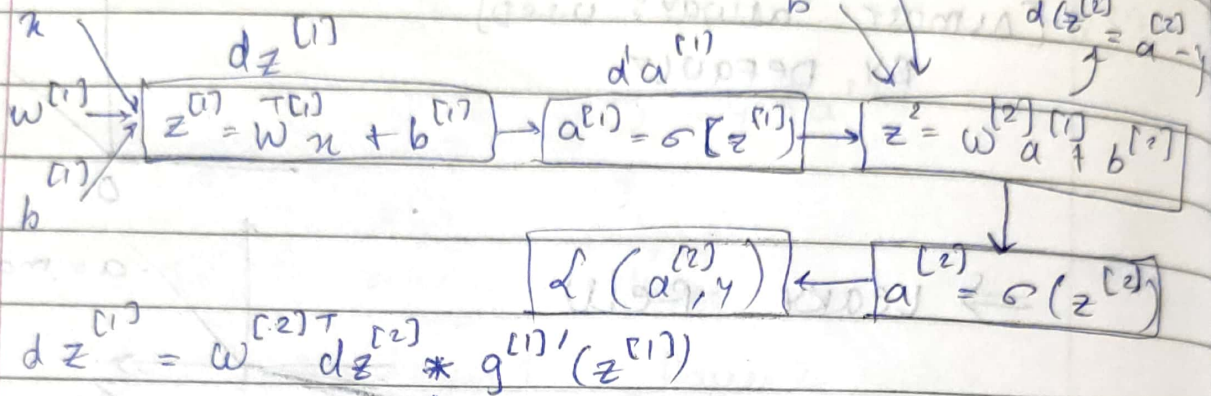 x
dz^[1] da^[1] d(z^[2] = a^[2] - y
w^[1] → z^[1] = W^T[1] x + b^[1] → a^[1] = σ[z^[1]) → z^2 = w^[2] a^[1] + b^[2]
b^[1]
L (a^[2], y) ← a^[2] = σ(z^[2])
dz^[1] = w^[2]T dz^[2] * g^[1]'(z^[1])